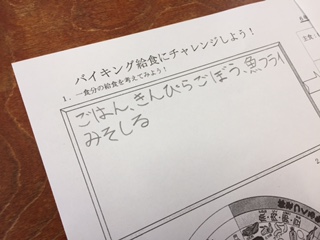 バイキング給食にチャレンジしよう！
1．一食分の給食を考えてみよう！
ごはん、きんぴらごぼう、魚フライ
みそしる
2.